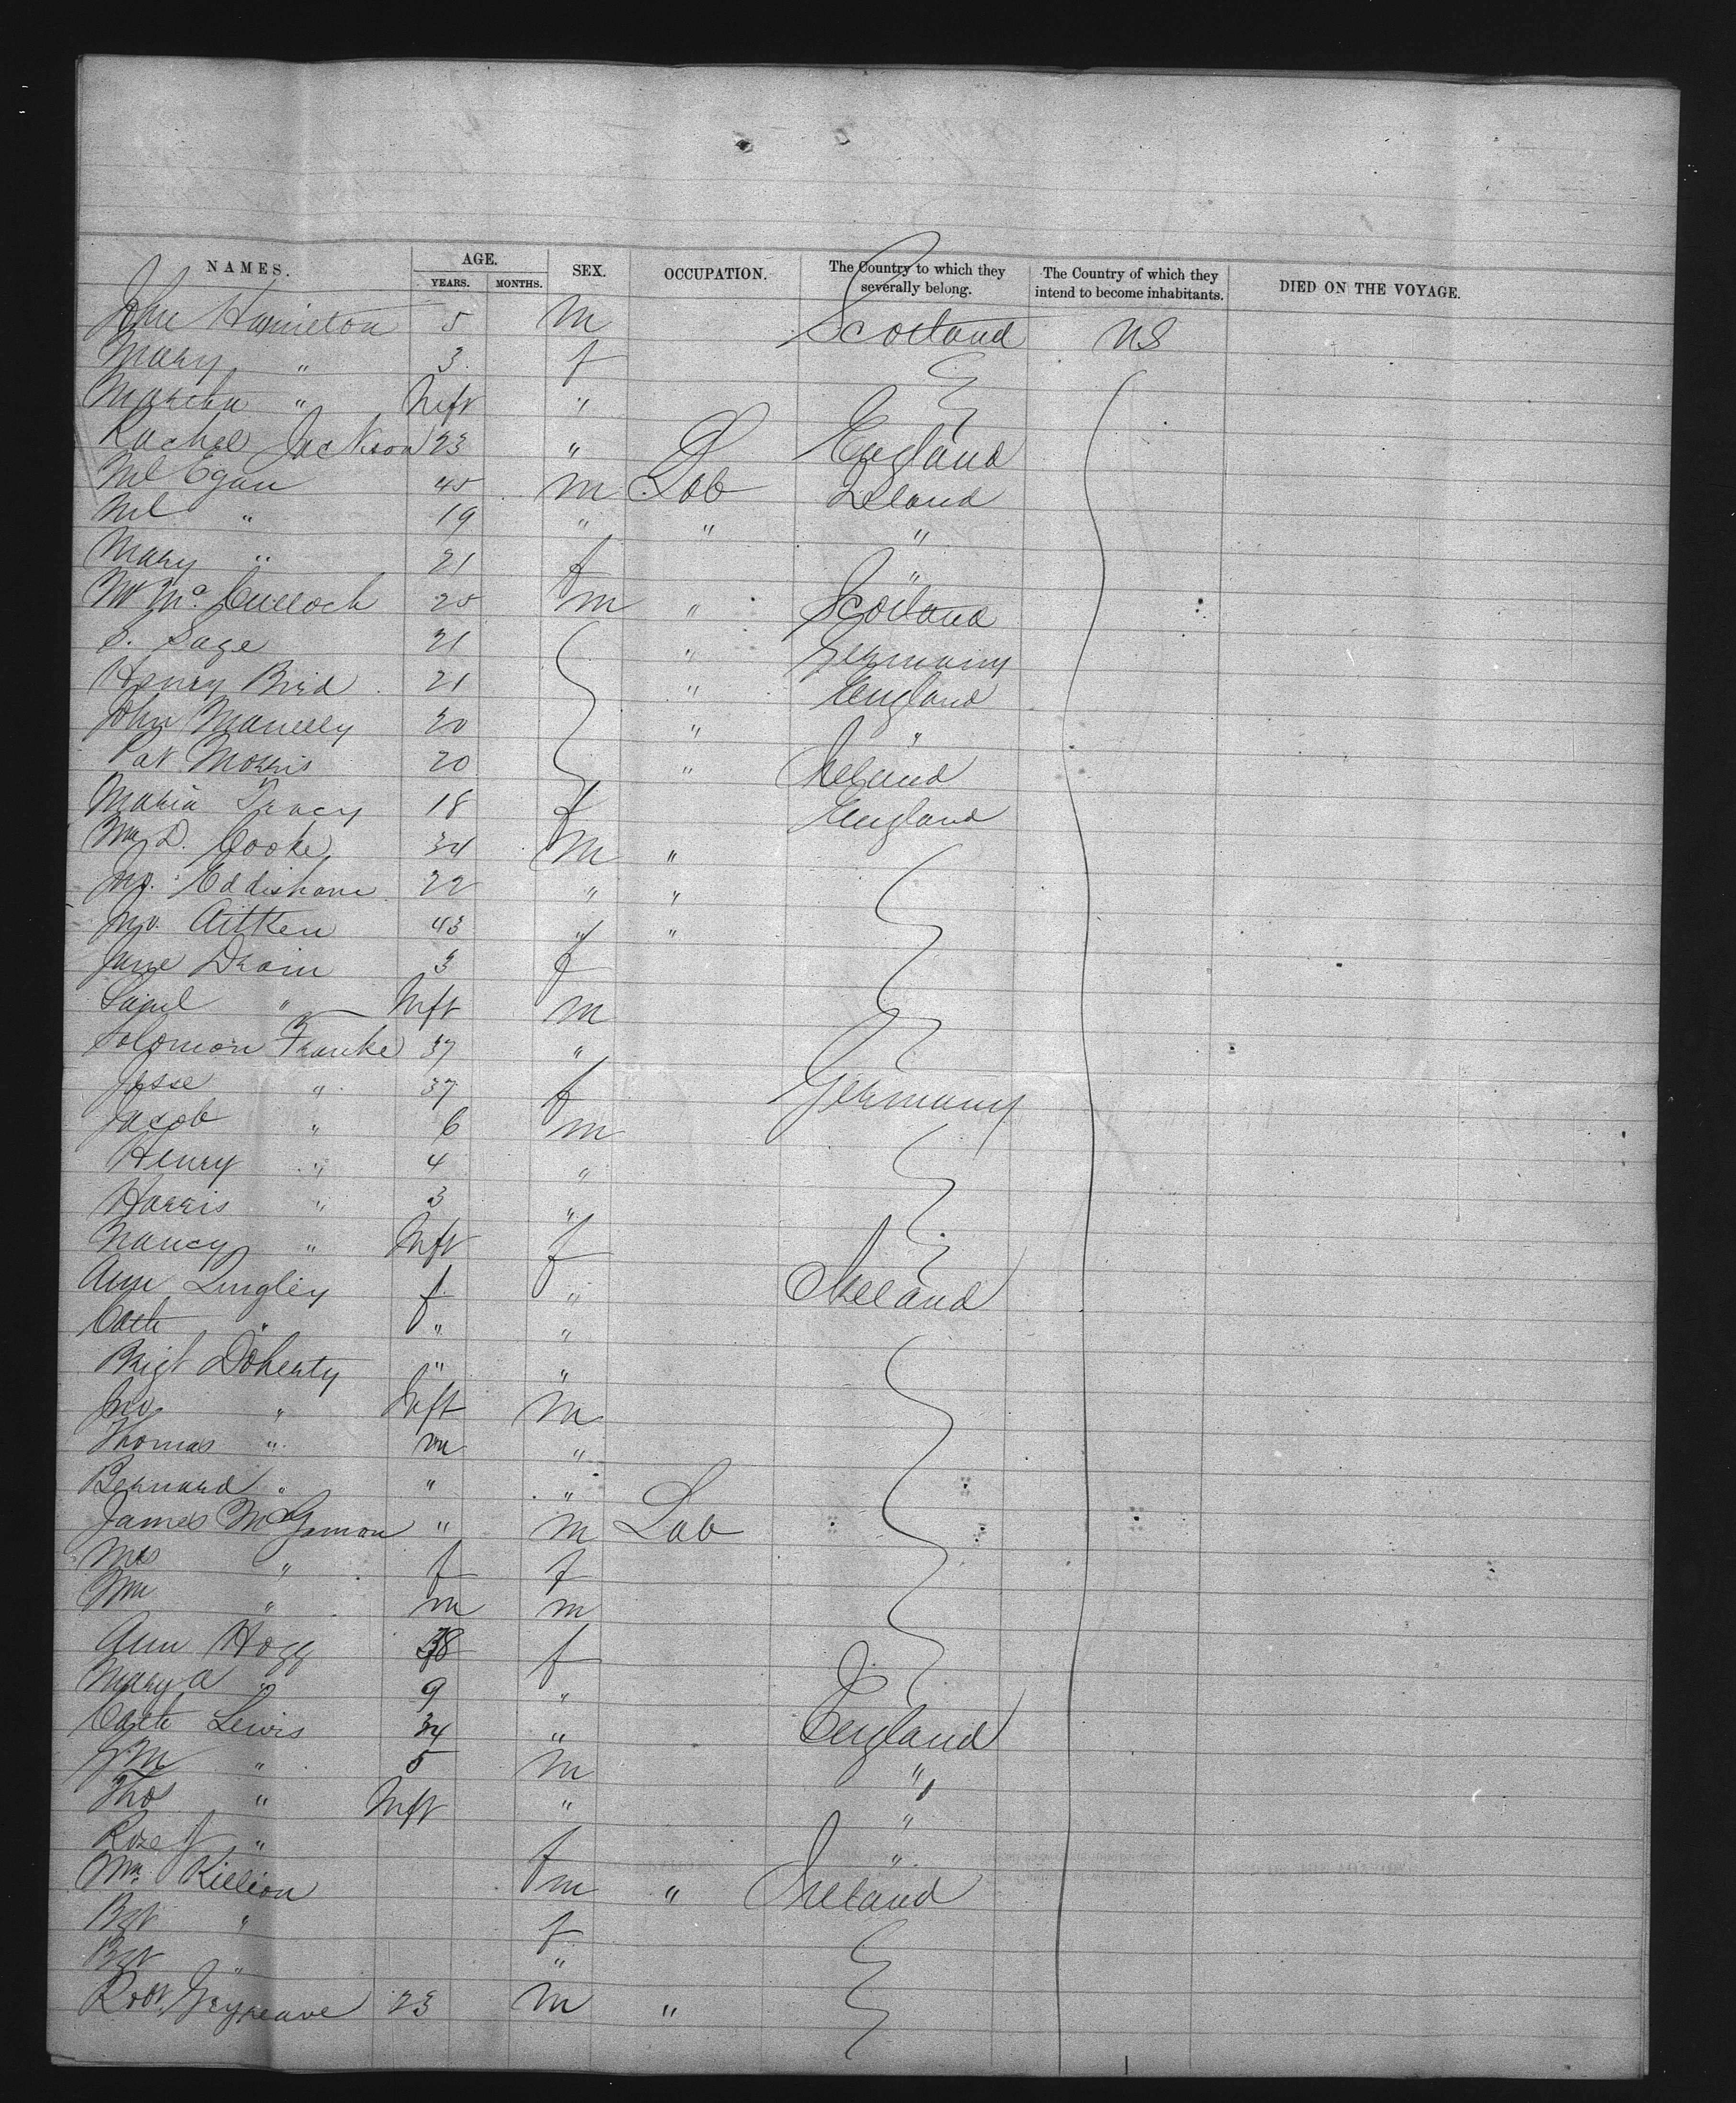 NAMES. AGE. SEX. OCCUPATION. The Country to which they severally belong. The Country of which they intend to become inhabitants. DIED ON THE VOYAGE.
YEARS. MONTHS.
John Hamilton 5 m Scotland US
Mary " 3 f
Martha " Inft "
Rachel Jackson 23 " England
Ml Egan 45 m Lab Ireland
Ml " 19 " " "
Mary " 21 f "
Mc Culloch 25 m " Scotland
S. Sage 21 " Germany
Henry Bird 21 " England
John Manelly 30 " "
Pat Morris 20 " Ireland
Maria Tracy 18 f England
Wm D. Cooke 34 m "
Jno. Eddishaw 22 " "
Jno. Aitken 43 " "
Jane Drain 3 f
Saml " Inft m
Solomon Franke 37 "
Jesse " 37 f Germany
Jacob " 6 m
Henry " 4 "
Harris " 3 "
Nancy " Inft f
Ann Lingley f " Ireland
Cath " " "
Brigt Doherty " "
Jno. " Inft m
Thomas " m "
Bernard " " "
James " m Lab
Mrs " f f
Wm " m m
Ann Hogg 38 f
Mary A " 9 "
Cath Lewis 34 " England
" 5 m "
Thos " Inft " "
Rose " f "
Wm Killion m " Ireland
Bgt " f
Bgt " "
Robt. 23 m "